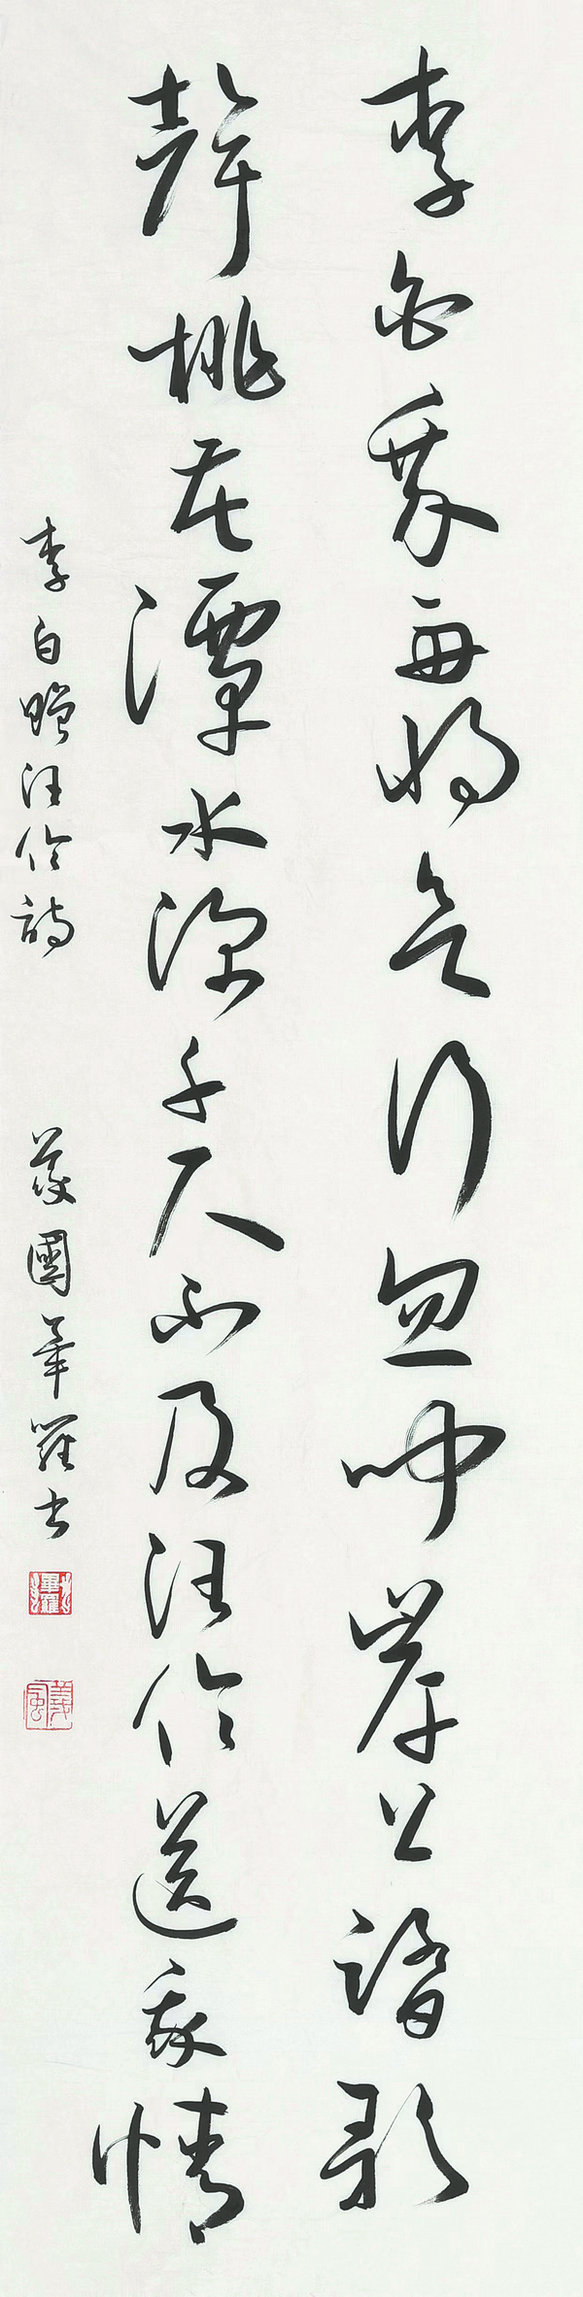 李白乘舟將欲行忽聞岸上踏歌
聲桃花潭水深千尺不及汪倫送我情
李白贈汪倫詩 義國畢羅书
義風